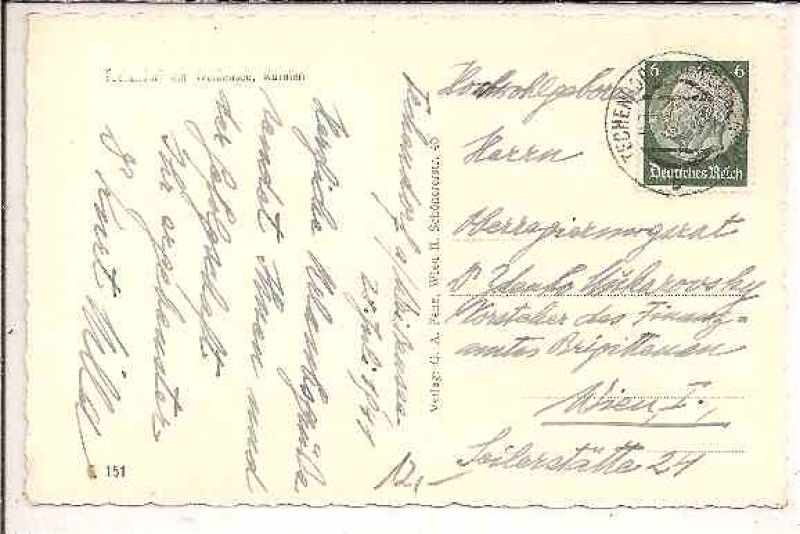 Techendorf am Weissensee, Kärnten
Techendorf a/Weissensee
20. Juli 1941
Herzliche Urlaubsgrüße
sendet Ihnen und
der Gefolgschaft
Ihr ergebenster
Dr Ernst
151
12,-
Verlag: G. A. Fenz, Wien II. Schönererstr. 45
6 6
Deutsches Reich
TECHENDORF
Hochwohlgeboren
Herrn
Oberregierungsrat
Dr
Vorsteher des Finanz-
amtes Brigittenau
Wien I.,
Seilerstätte 24